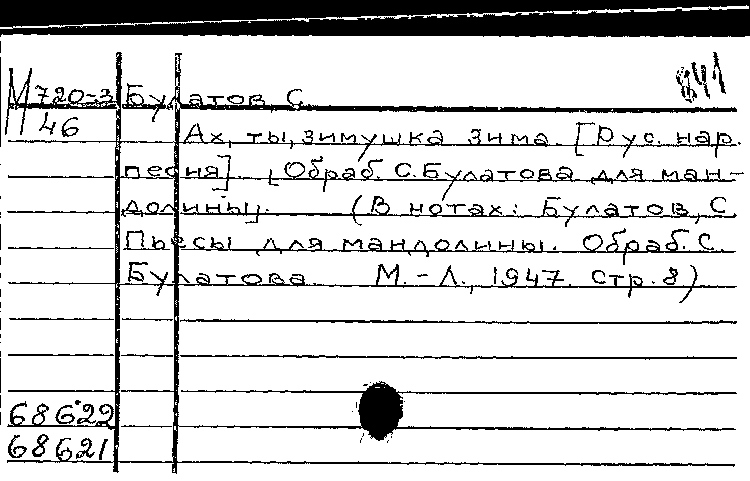 841
М 720-3 Булатов, С.
46 Ах, ты, зимушка зима. [Рус. нар.
песня]. [Обраб. С. Булатова для ман-
долины]. (В нотах: Булатов, С.
Пьесы для мандолины. Обраб. С.
Булатова. М.-Л., 1947. стр. 8)
68622
68621